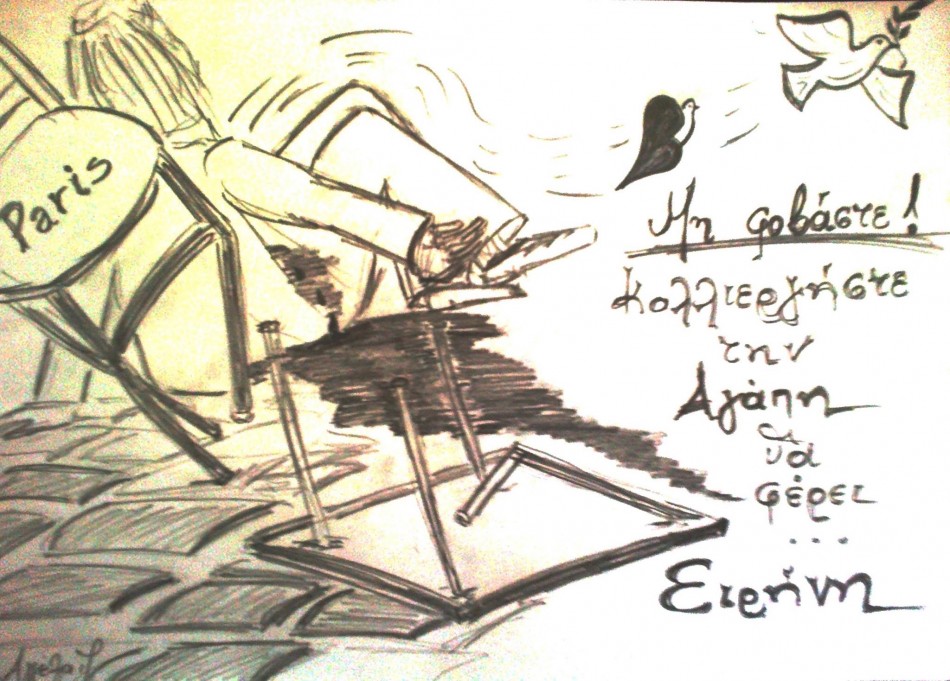 Paris
Μη φοβάστε!
Καλλιεργήστε
την
Αγάπη
θα
φέρει
...
Ειρήνη